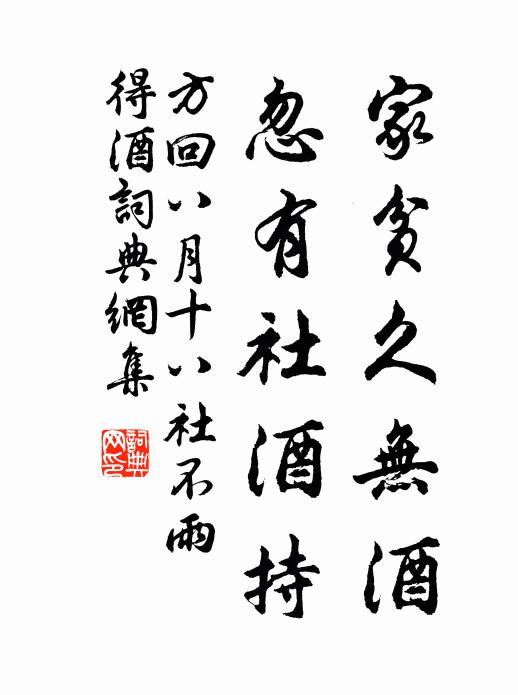 家貧久無酒
忽有社酒持
方回八月十八社不雨
得酒詞典網集
詞典
网印